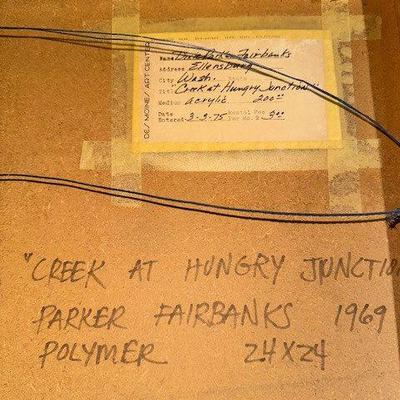 DES MOINES ART CENTER
Name Dick Parker Fairbanks
Address Ellensburg
City Wash. State
Title "Creek at Hungry Junction"
Medium acrylic 200.00
Date Entered 3-3-75 Rental Fee Per Mo. 9.00
"CREEK AT HUNGRY JUNCTION
PARKER FAIRBANKS 1969
POLYMER 24X24